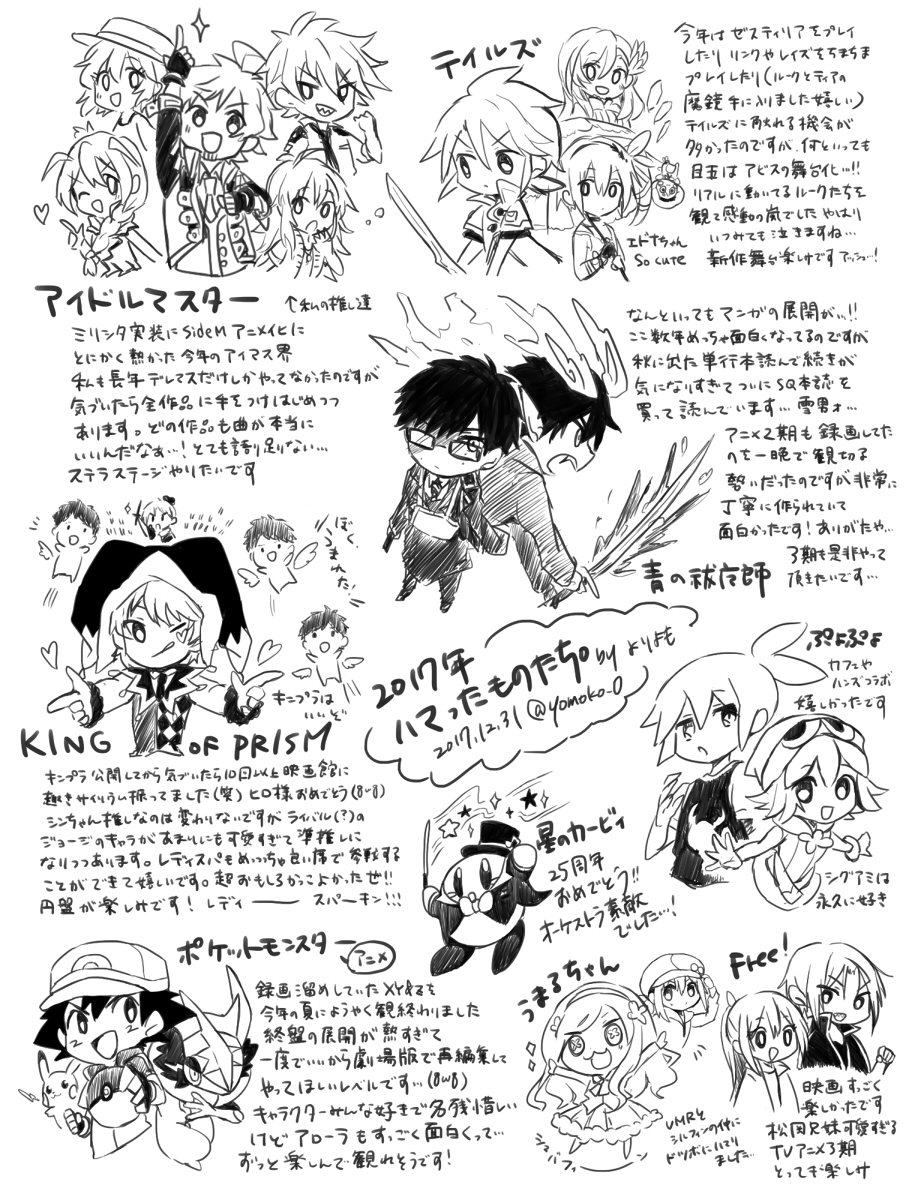 アイドルマスター
↑私の推し達
ミリシタ実装にSideMアニメ化に
とにかく熱かった今年のアイマス界
私も長年デレマスだけしかやってなかったのですが
気づいたら全作品に手をつけはじめつつ
あります。どの作品も曲が本当に
いいんだなぁ…！とても語り足りない…
ステラステージやりたいです
テイルズ
今年はゼスティリアをプレイ
したりリンクやレイズをちまちま
プレイしたり(ルークとティアの
魔鏡手に入りました嬉しい)
テイルズに触れる機会が
多かったのですが、何といっても
目玉はアビスの舞台化…!!
リアルに動いてるルークたちを
観て感動の嵐でした やはり
いつみても泣きますね…
新作舞台楽しみですアッシュ…!
エドナちゃん
So cute
なんといってもマンガの展開が…!!
ここ数年めっちゃ面白くなってるのですが
秋に出た単行本読んで続きが
気になりすぎてついにSQ本誌を
買って読んでいます…雪男ォ…
アニメ2期も録画してた
のを一晩で観切る
勢いだったのですが非常に
丁寧に作られていて
面白かったです！ありがたや…
3期も是非やって
頂きたいです…
青の祓魔師
ぼくうまれた!
キンプラは
いいぞ
KING OF PRISM
キンプラ公開してから気づいたら10回以上映画館に
趣きサイリウム振ってました(笑) ヒロ様おめでとう(8ω8)
シンちゃん推しなのは変わりないですがライバル(?)の
ジョージのキャラがあまりにも可愛すぎて準推しに
なりつつあります。レディスパもめっちゃ良い席で参戦する
ことができて嬉しいです。超おもしろかっこよかたぜ!!
円盤が楽しみです！ レディ―― スパーキン!!!
2017年
ハマったものたち。by よりよも
2017.12.31 @yomoko_0
ぷよぷよ
カフェや
ハンズコラボ
嬉しかったです
シグアミは
永久に好き
星のカービィ
25周年
おめでとう!!
オーケストラ素敵
でした…!
ポケットモンスター
アニメ
録画溜めしていたXY&Zを
今年の夏にようやく観終わりました
終盤の展開が熱すぎて
一度でいいから劇場版で再編集して
やってほしいレベルです…(8ω8)
キャラクターみんな好きで名残惜しい
けどアローラもすっごく面白くって…
ずっと楽しんで観れそうです！
うまるちゃん
UMRと
シルフィンの仲に
ドツボにハマり
ました…
Free!
映画すっごく
楽しかったです
松岡兄妹可愛すぎる
TVアニメ3期
とっても楽しみ